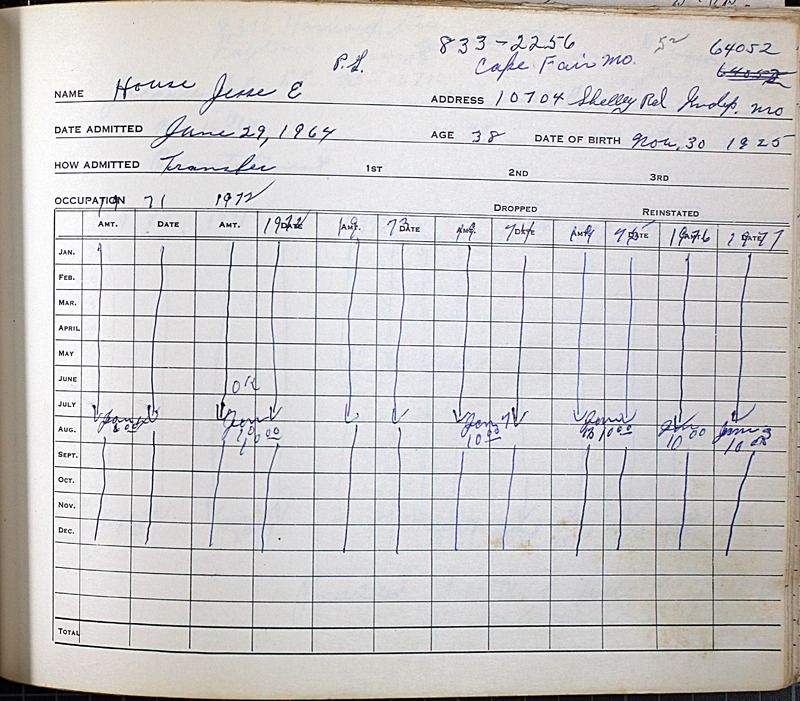 833-2256 52 64052
P.L. Cape Fair Mo. 64052
NAME House Jesse E ADDRESS 10704 Shelley Rd Indep. Mo
DATE ADMITTED June 29, 1964 AGE 38 DATE OF BIRTH Nov. 30 1925
HOW ADMITTED Transfer 1ST 2ND 3RD
OCCUPATION 71 1972 DROPPED REINSTATED
AMT. DATE AMT. DATE AMT. 73 DATE AMT. DATE AMT. DATE 1976 AMT. 1977 DATE
JAN.
FEB.
MAR.
APRIL
MAY
JUNE OK
JULY
AUG. Jan Jan Jan Jan
10 00 10 00 10 00 10 00
SEPT.
OCT.
NOV.
DEC.
TOTAL